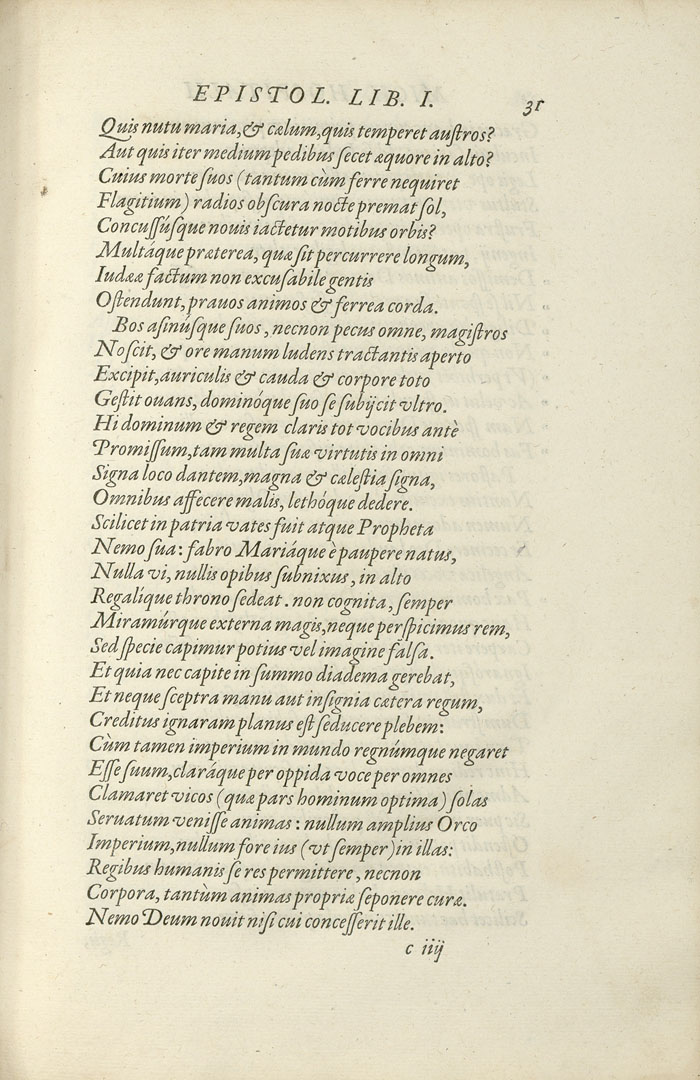 EPISTOL. LIB. I. 31
Quis nutu maria, & cælum, quis temperet austros?
Aut quis iter medium pedibus secet æquore in alto?
Cuius morte suos (tantum cùm ferre nequiret
Flagitium) radios obscura nocte premat sol,
Concussúsque nouis iactetur motibus orbis?
Multáque præterea, quæ sit percurrere longum,
Iudææ factum non excusabile gentis
Ostendunt, prauos animos & ferrea corda.
Bos asinúsque suos, necnon pecus omne, magistros
Noscit, & ore manum ludens tractantis aperto
Excipit, auriculis & cauda & corpore toto
Gestit ouans, dominóque suo se subijcit vltro.
Hi dominum & regem claris tot vocibus antè
Promissum, tam multa suæ virtutis in omni
Signa loco dantem, magna & cælestia signa,
Omnibus affecere malis, lethóque dedere.
Scilicet in patria vates fuit atque Propheta
Nemo sua: fabro Mariáque è paupere natus,
Nulla vi, nullis opibus subnixus, in alto
Regalíque throno sedeat. non cognita, semper
Miramúrque externa magis, neque perspicimus rem,
Sed specie capimur potius vel imagine falsa.
Et quia nec capite in summo diadema gerebat,
Et neque sceptra manu aut insignia cætera regum,
Creditus ignaram planus est seducere plebem:
Cùm tamen imperium in mundo regnúmque negaret
Esse suum, claráque per oppida voce per omnes
Clamaret vicos (quæ pars hominum optima) solas
Seruatum venisse animas: nullum amplius Orco
Imperium, nullum fore ius (vt semper) in illas:
Regibus humanis se res permittere, necnon
Corpora, tantùm animas propriæ seponere curæ.
Nemo Deum nouit nisi cui concesserit ille.
c iiij